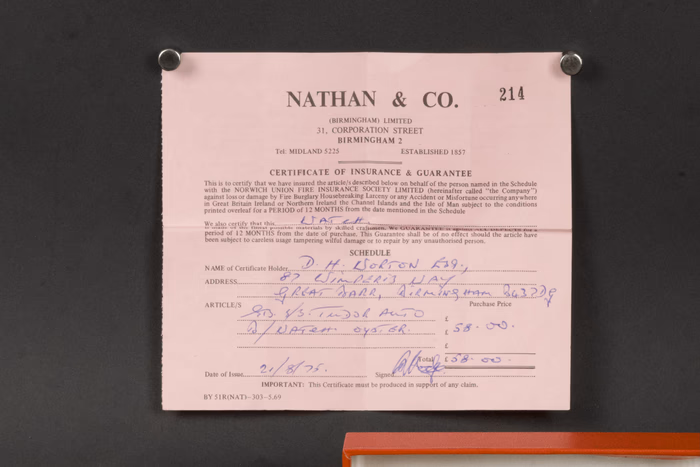 NATHAN & CO. 214
(BIRMINGHAM) LIMITED
31, CORPORATION STREET
BIRMINGHAM 2
Tel: MIDLAND 5225 ESTABLISHED 1857
CERTIFICATE OF INSURANCE & GUARANTEE
This is to certify that we have insured the article/s described below on behalf of the person named in the Schedule
with the NORWICH UNION FIRE INSURANCE SOCIETY LIMITED (hereinafter called "the Company")
against loss or damage by Fire Burglary Housebreaking Larceny or any Accident or Misfortune occurring anywhere
in Great Britain Ireland or Northern Ireland the Channel Islands and the Isle of Man subject to the conditions
printed overleaf for a PERIOD of 12 MONTHS from the date mentioned in the Schedule
We also certify that this WATCH.
period of 12 MONTHS from the date of purchase. This Guarantee shall be of no effect should the article have
been subject to careless usage tampering wilful damage or to repair by any unauthorised person.
SCHEDULE
NAME of Certificate Holder D. H. WORTON ESQ.,
ADDRESS 87 WIMPERIS WAY
GREAT BARR, BIRMINGHAM B43 7DG
ARTICLE/S Purchase Price
GTS. S/S. TUDOR AUTO £
B/WATCH OYSTER. £ 58.00.
£
Total £ 58.00.
Date of Issue 21/8/75. Signed
IMPORTANT: This Certificate must be produced in support of any claim.
BY 51R(NAT)-303-5.69